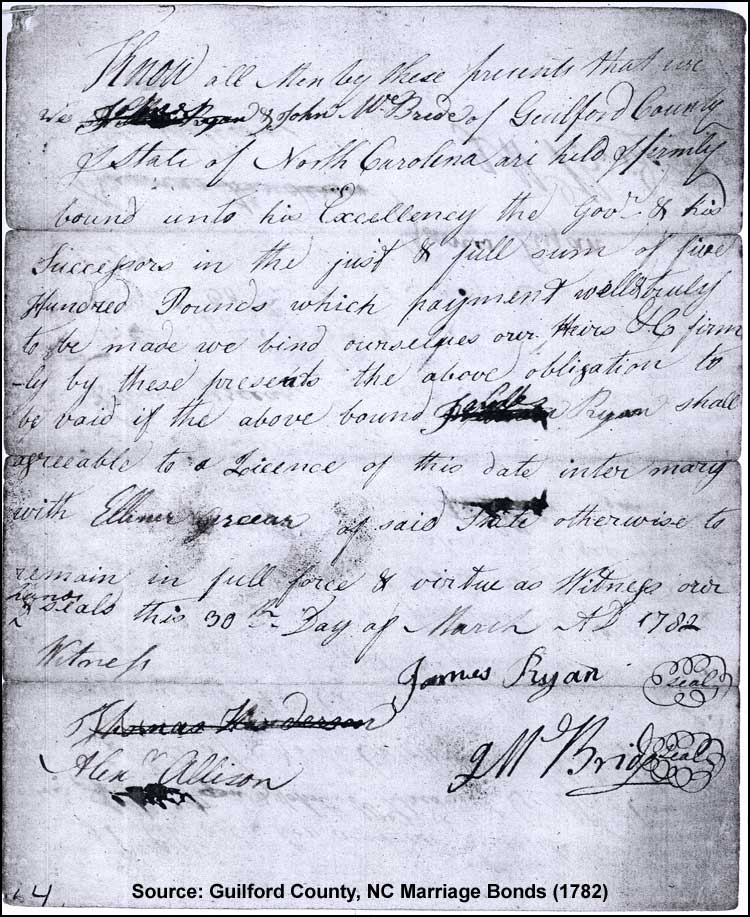 Know all Men by these presents that we
We Ryan & John McBride of Guilford County
& State of North Carolina are held & firmly
bound unto his Excellency the Govr. & his
Successors in the just & full sum of five
Hundred Pounds which payment well & truly
to be made we bind ourselves our Heirs &C firm
-ly by these presents the above obligation to
be void if the above bound Ryan shall
agreeable to a Licence of this date inter mary
with Elliner of said State otherwise to
remain in full force & virtue as Witness our
hands & seals this 30th Day of March AD 1782
Witness
James Ryan Seal
Thomas Henderson
Alexr Allison
J McBride Seal
4
Source: Guilford County, NC Marriage Bonds (1782)